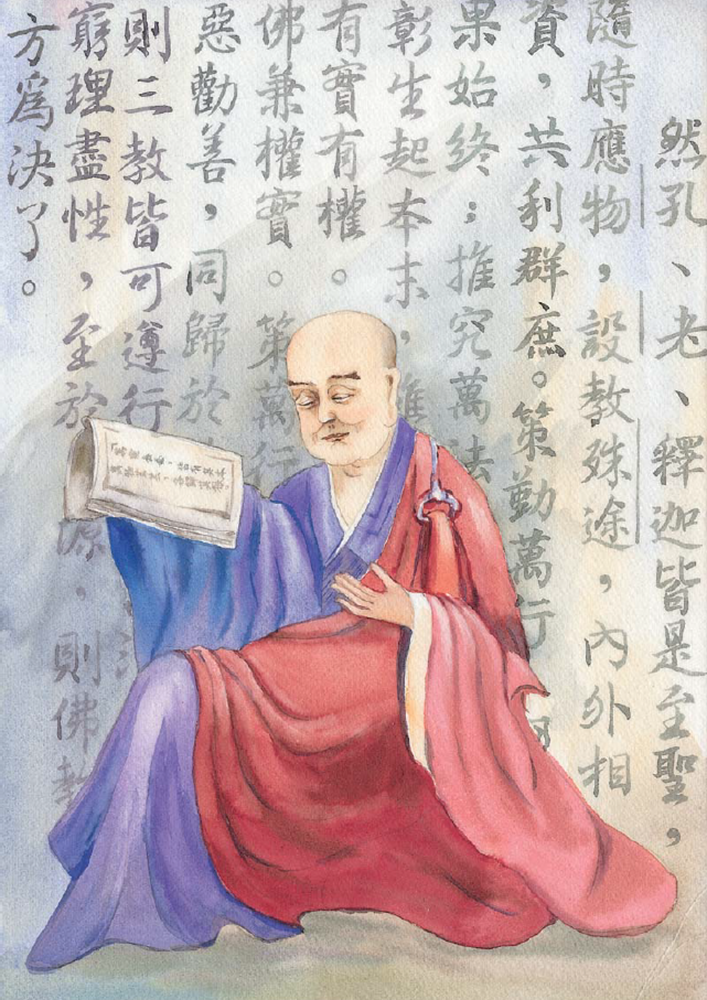 然孔、老、釋迦皆是至聖，
隨時應物，設教殊途，內外相
資，共利群庶。策勤萬行
果始終：推究萬法
彰生起本末，
有實有權。
佛兼權實。策萬行
惡勸善，同歸於
則三教皆可遵行
窮理盡性，至於源，則佛教
方爲決了。